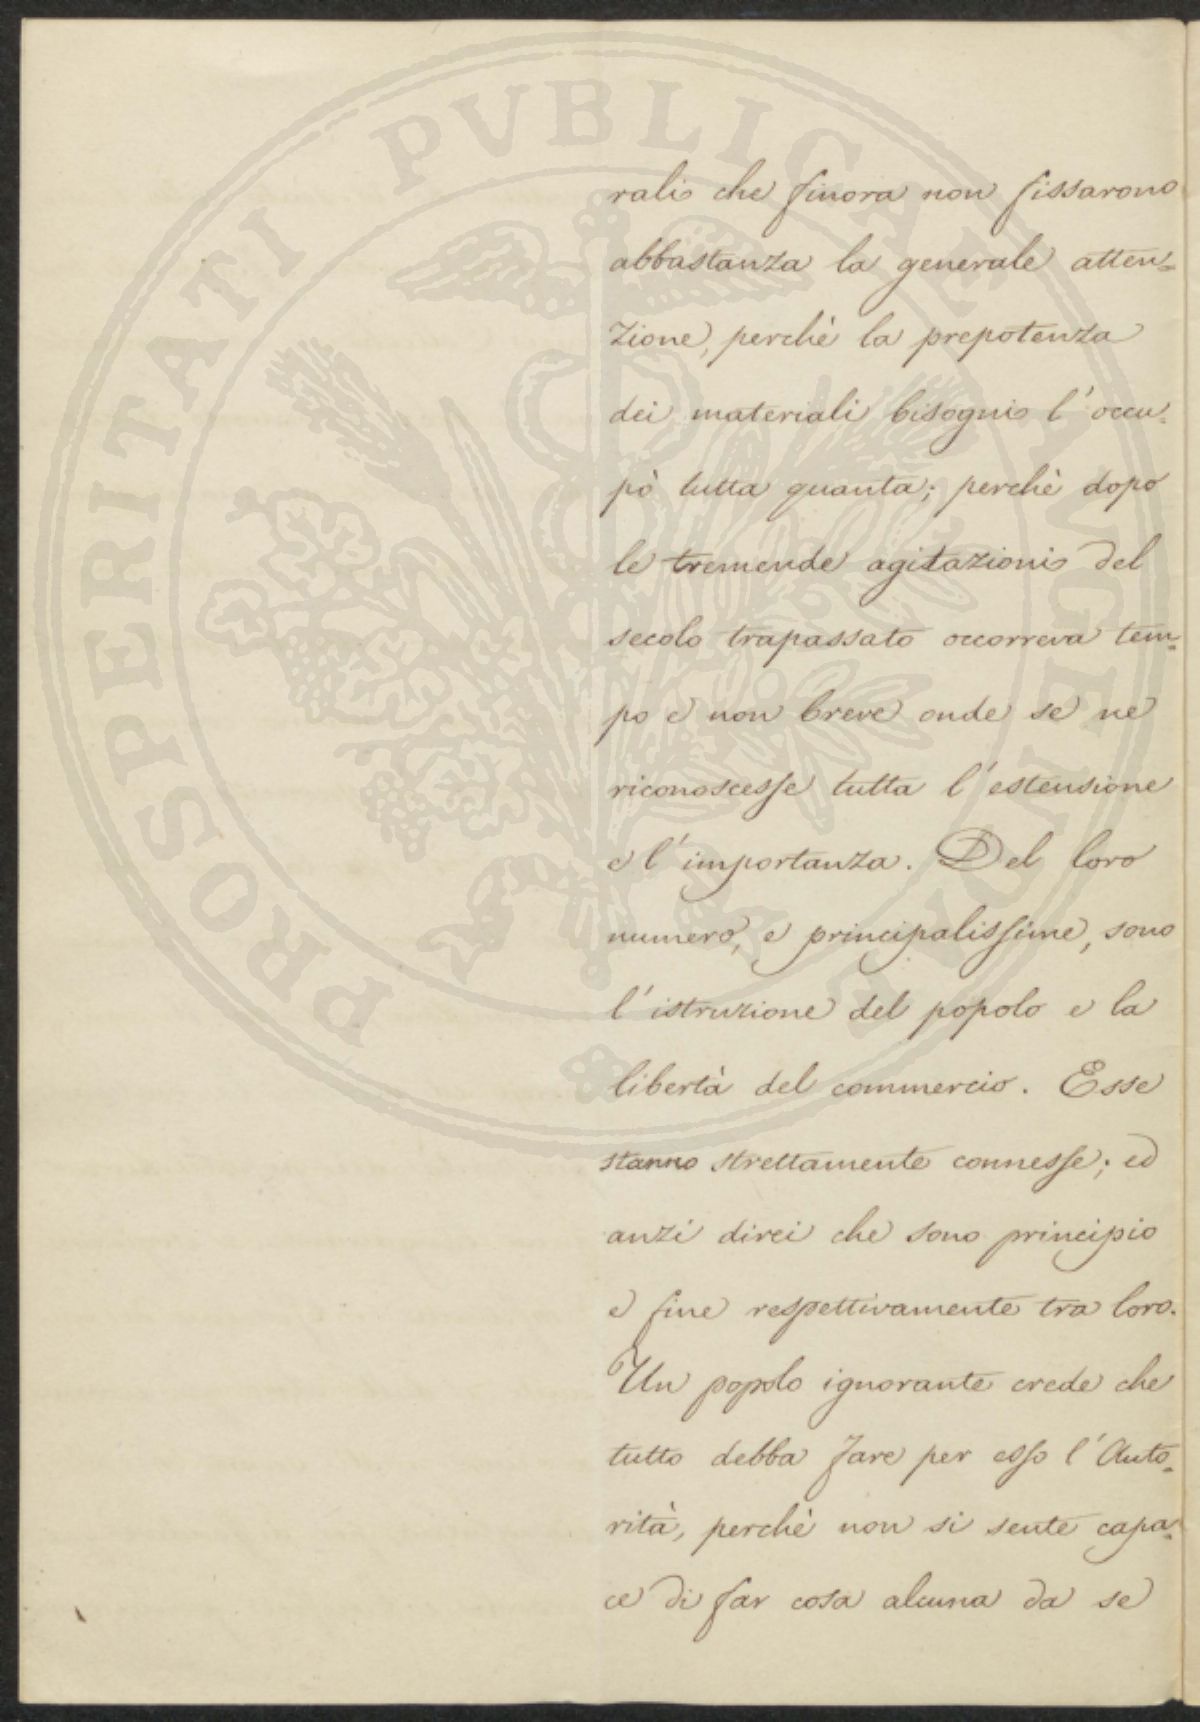 PROSPERITATI PVBLICAE AVGENDAE
rali che finora non fissarono
abbastanza la generale atten=
zione, perchè la prepotenza
dei materiali bisogni l'occu=
pò tutta quanta; perchè dopo
le tremende agitazioni del
secolo trapassato occorreva tem=
po e non breve onde se ne
riconoscesse tutta l'estensione
e l'importanza. Del loro
numero, e principalissime, sono
l'istruzione del popolo e la
libertà del commercio. Esse
stanno strettamente connesse; ed
anzi direi che sono principio
e fine respettivamente tra loro.
Un popolo ignorante crede che
tutto debba fare per esso l'Auto=
rità, perchè non si sente capa=
ce di far cosa alcuna da se